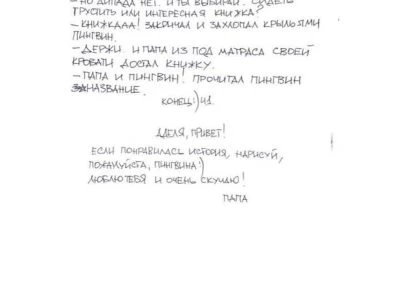 – НО ДИПАДА НЕТ. И ТЫ ВЫБИРАЙ: СИДЕТЬ
ГРУСТИТЬ ИЛИ ИНТЕРЕСНАЯ КНИЖКА?
– КНИЖКДАА! ЗАКРИЧАЛ И ЗАХЛОПАЛ КРЫЛЬЯМИ
ПИНГВИН.
– ДЕРЖИ. И ПАПА ИЗ ПОД МАТРАСА СВОЕЙ
КРОВАТИ ДОСТАЛ КНИЖКУ.
– ПАПА И ПИНГВИН! ПРОЧИТАЛ ПИНГВИН
НАЗВАНИЕ.
КОНЕЦ:) Ч1.
АДЕЛЯ, ПРИВЕТ!
ЕСЛИ ПОНРАВИЛАСЬ ИСТОРИЯ, НАРИСУЙ,
ПОЖАЛУЙСТА, ПИНГВИНА:)
ЛЮБЛЮ ТЕБЯ И ОЧЕНЬ СКУЧАЮ!
ПАПА